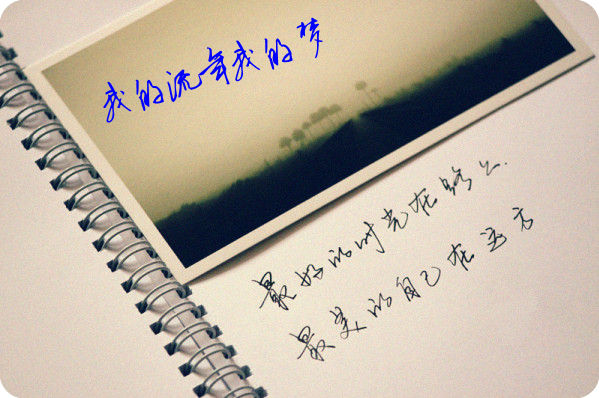 我的流年我的梦
最好的时光在路上.
最美的自己在远方